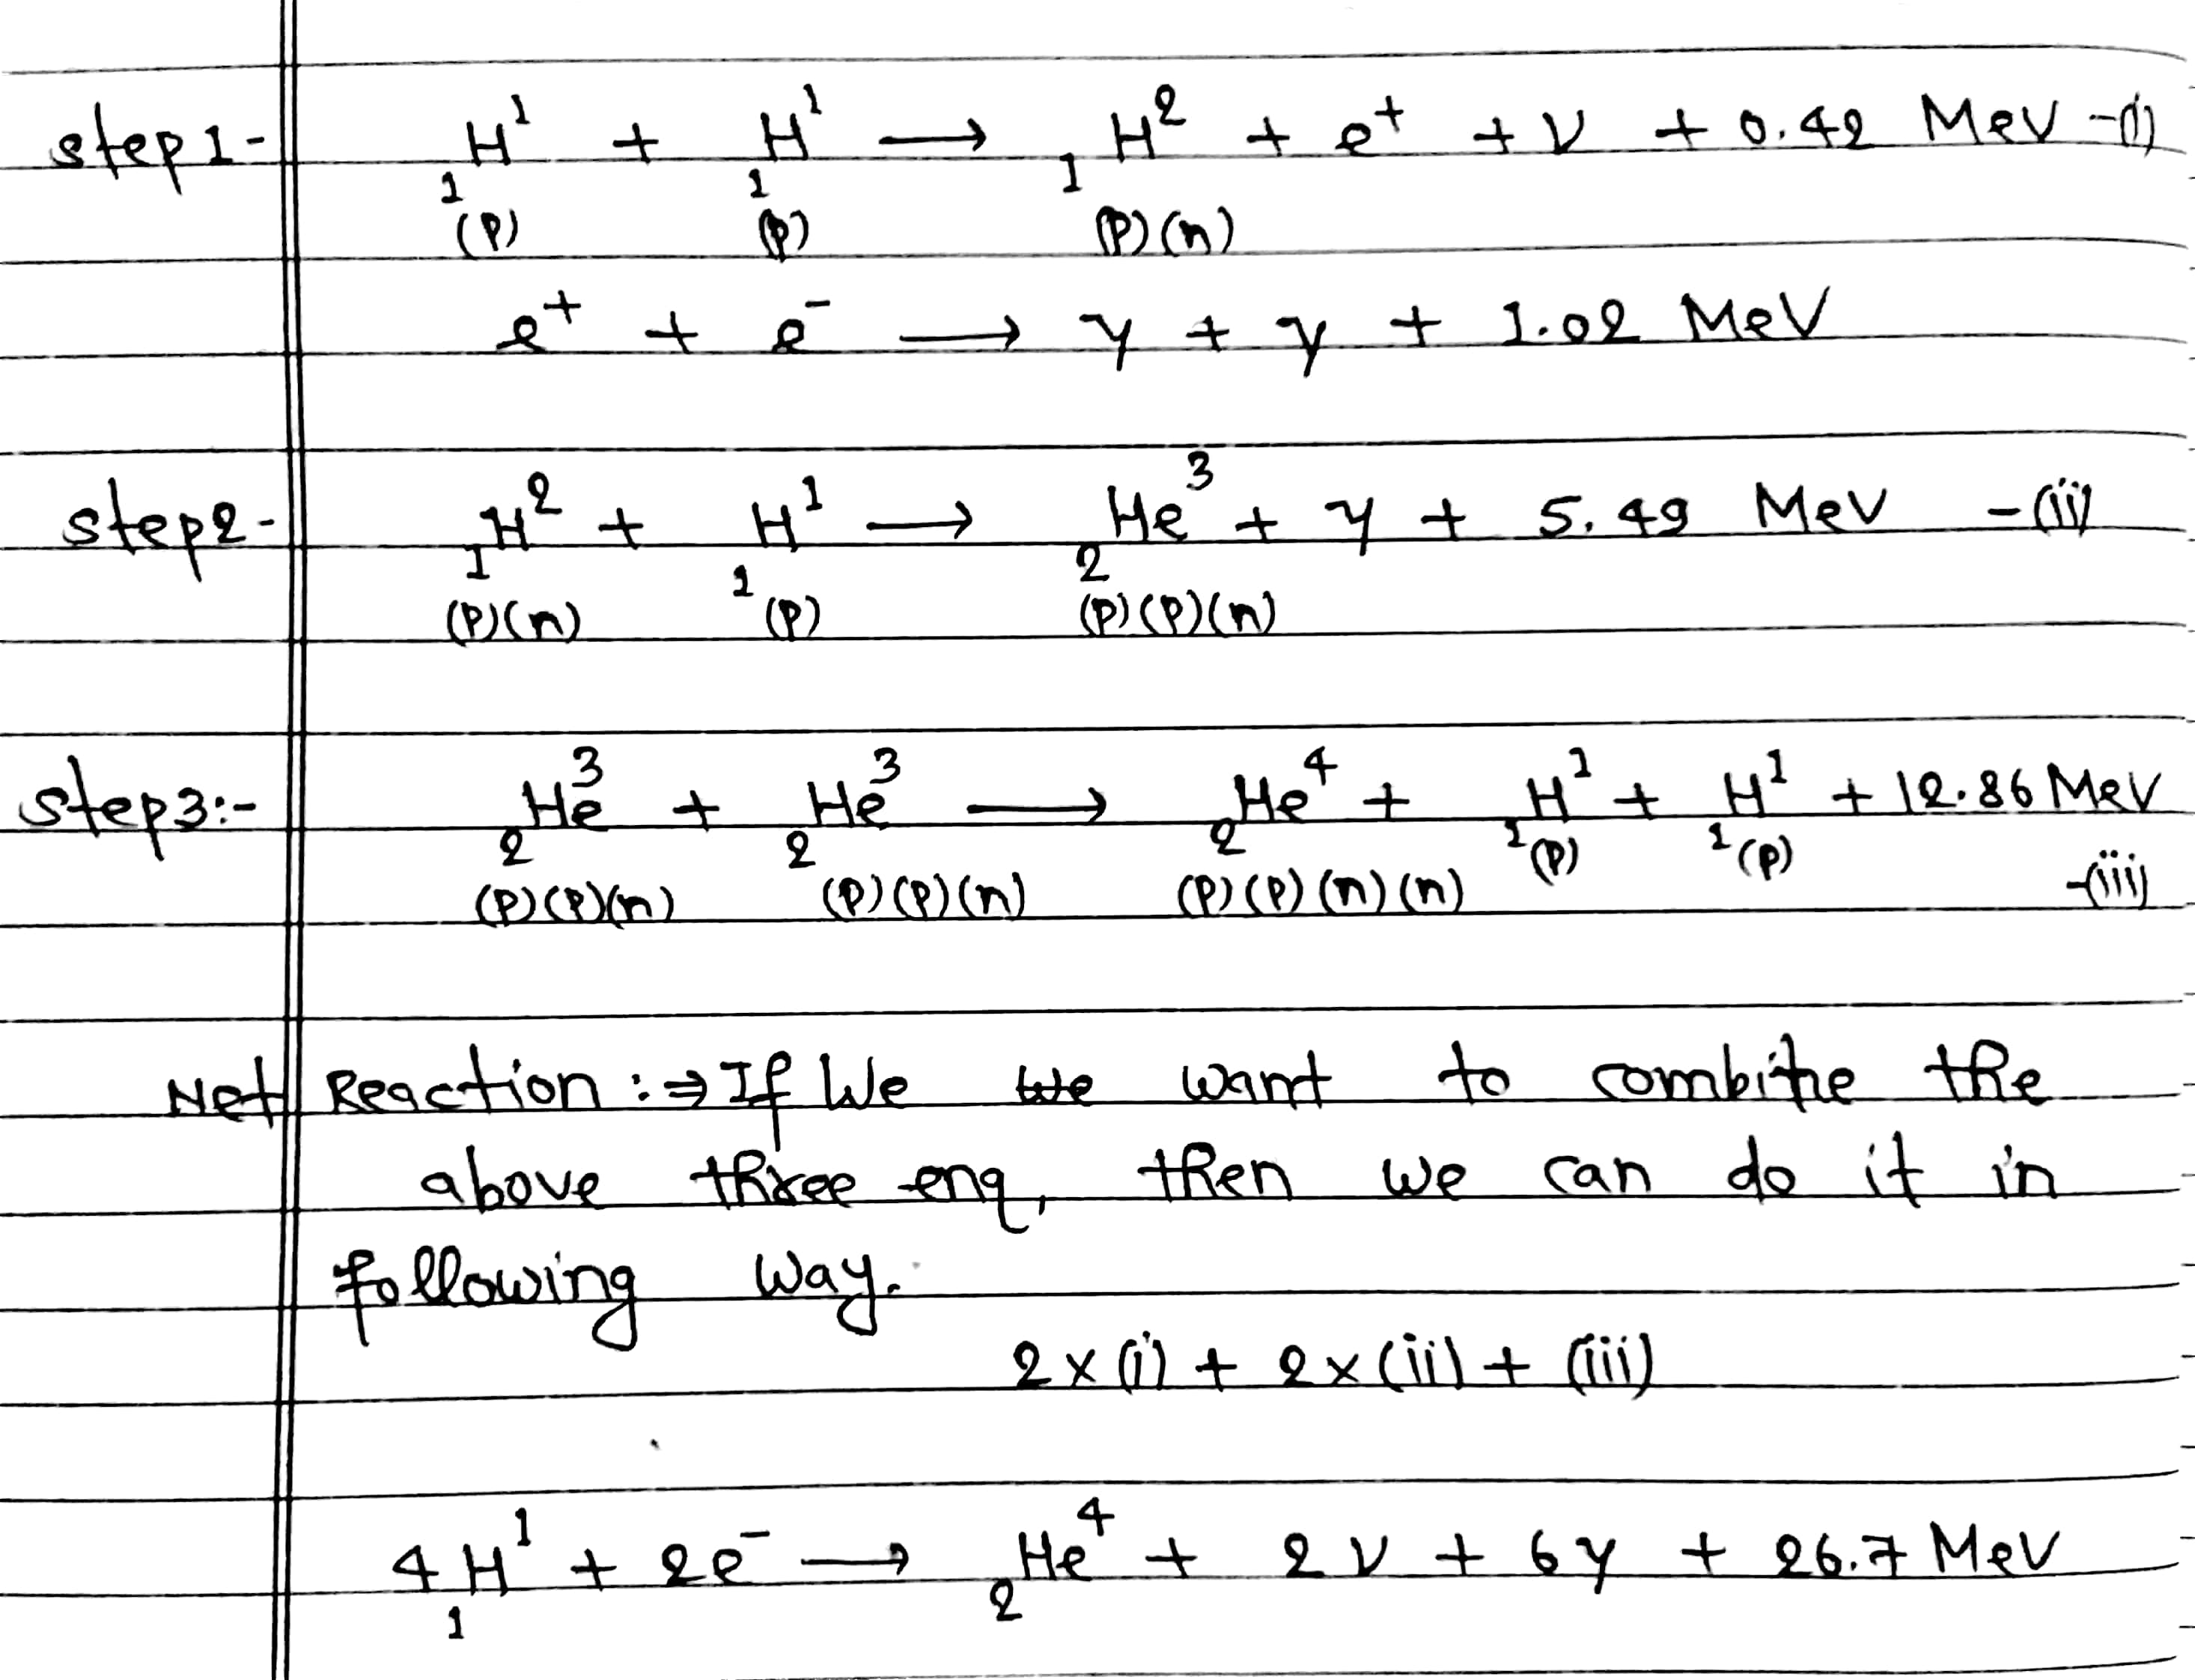 step1- ₁H¹ + ₁H¹ ⟶ ₁H² + e⁺ + ν + 0.42 MeV -(i)
(P) (P) (P)(n)
e⁺ + e⁻ ⟶ γ + γ + 1.02 MeV
step2- ₁H² + ₁H¹ ⟶ ₂He³ + γ + 5.49 MeV -(ii)
(P)(n) (P) (P)(P)(n)
step3:- ₂He³ + ₂He³ ⟶ ₂He⁴ + ₁H¹ + ₁H¹ + 12.86 MeV
(P)(P)(n) (P)(P)(n) (P)(P)(n)(n) (P) (P) -(iii)
Net Reaction :⇒ If We we want to combine the
above three enq, then we can do it in
following way.
2×(i) + 2×(ii) + (iii)
4 ₁H¹ + 2e⁻ ⟶ ₂He⁴ + 2ν + 6γ + 26.7 MeV